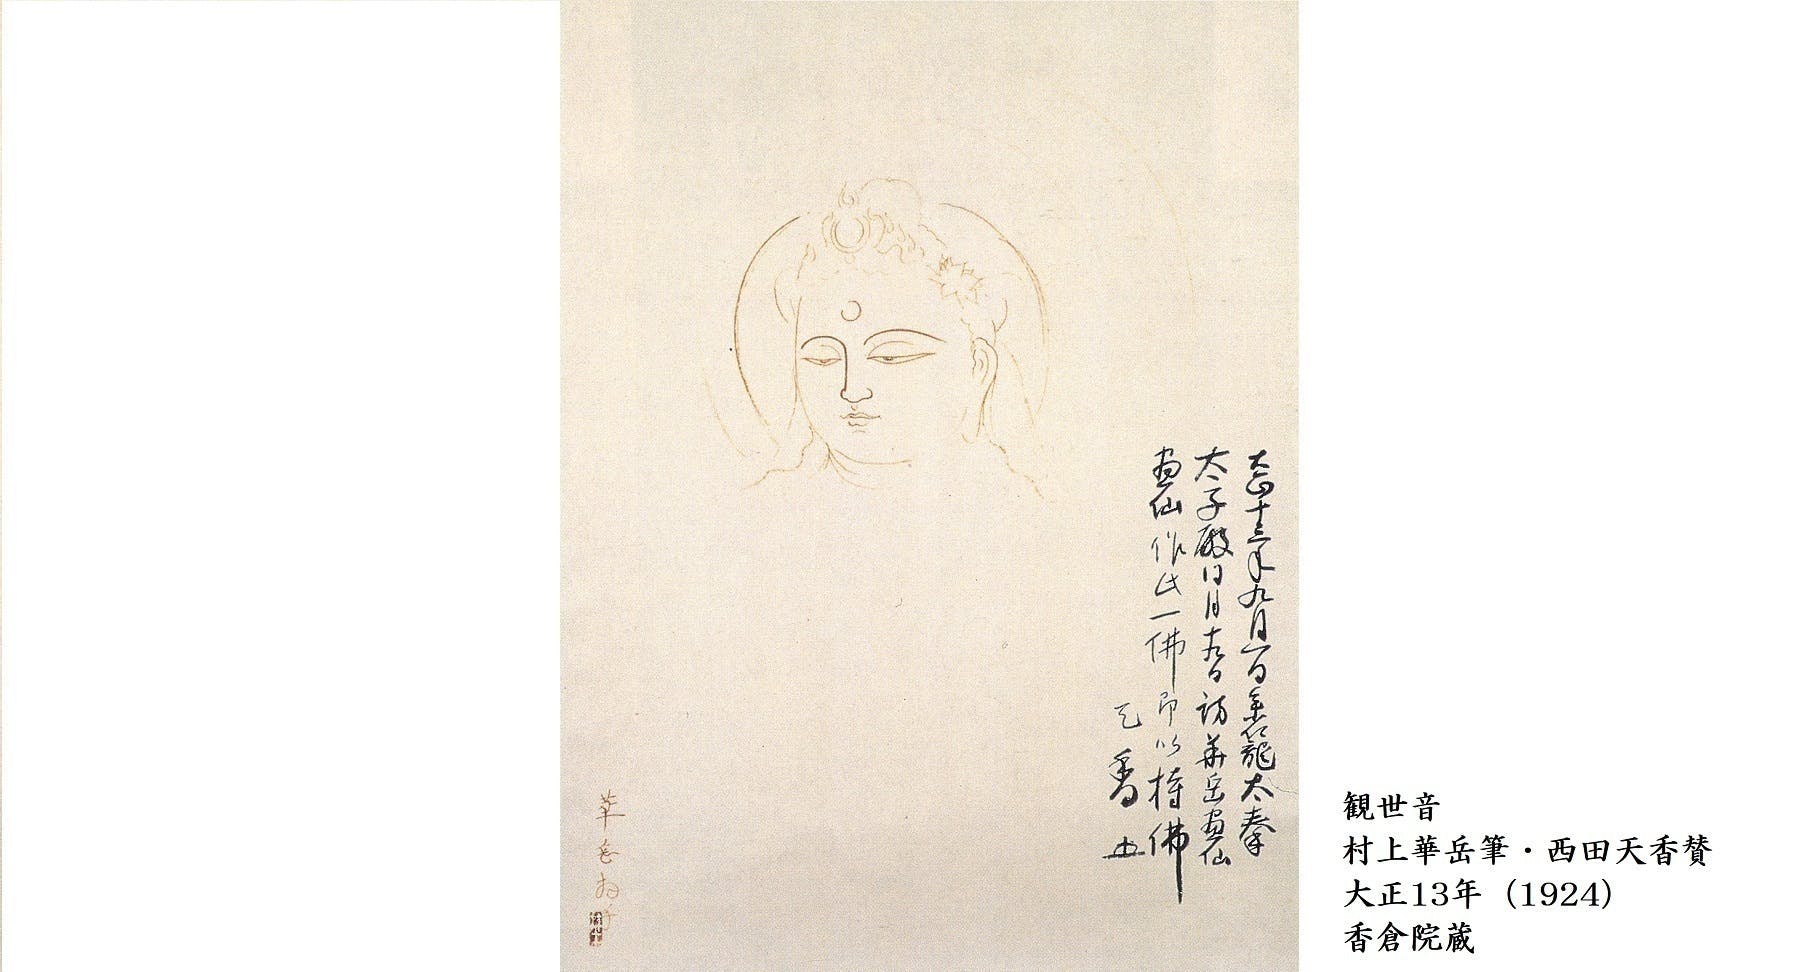 大正十三年九月一日余籠太秦
太子殿同月十九日訪華岳画仙
画仙作此一佛即以持佛
天香
華岳
観世音
村上華岳筆・西田天香賛
大正13年（1924）
香倉院蔵